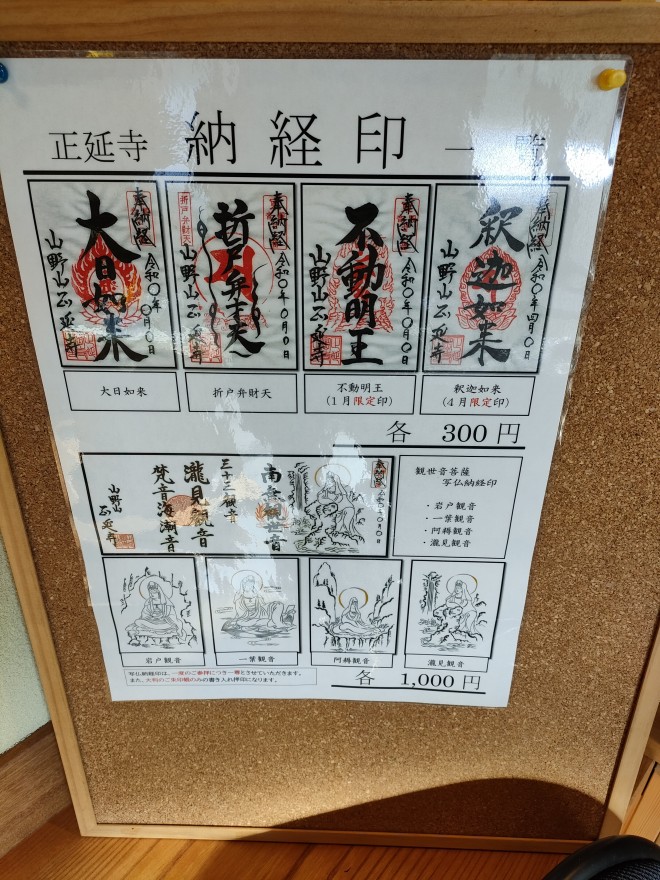 正延寺 納経印 一覧
奉納経
大日如来
令和〇年〇月〇日
山野山正延寺
折戸弁財天
奉納経
折戸弁才天
令和〇年〇月〇日
山野山正延寺
奉納経
不動明王
令和〇年〇月〇日
山野山正延寺
奉納経
釈迦如来
令和〇年四月〇日
山野山正延寺
大日如来
折戸弁財天
不動明王
(1月限定印)
釈迦如来
(4月限定印)
各 300円
奉納経
令和〇年〇月〇日
南無観世音
三十三観音
瀧見観音
梵音海潮音
山野山
正延寺
観世音菩薩
写仏納経印
・岩戸観音
・一葉観音
・阿耨観音
・瀧見観音
岩戸観音
一葉観音
阿耨観音
瀧見観音
写仏納経印は、一度のご参拝につき一尊とさせていただきます。
また、大判のご朱印帳のみの書き入れ押印になります。
各 1,000円